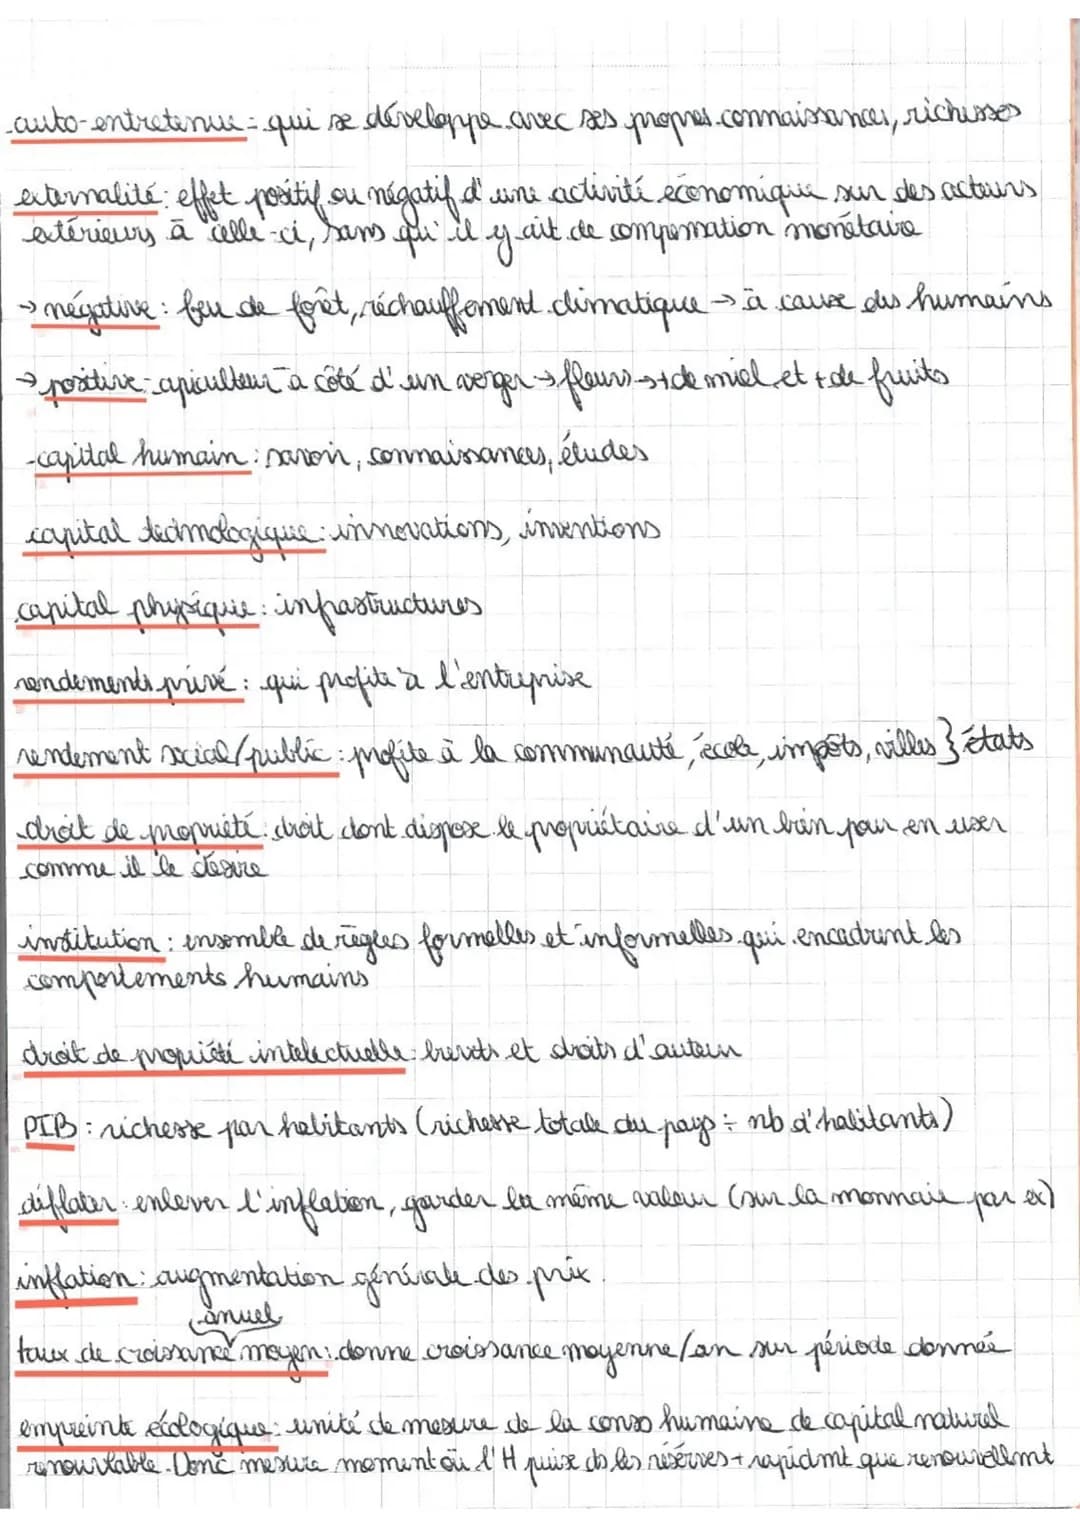 auto-entretenue = qui se développe avec ses propres connaissances, richesses
externalité : effet positif ou négatif d'une activité économique sur des acteurs
extérieurs à celle-ci, sans qu'il y ait de compensation monétaire
→ négative : feu de forêt, réchauffement climatique → à cause des humains
→ positive : apiculteur à côté d'un verger → fleurs → + de miel et + de fruits
- capital humain : savoir, connaissances, études
capital technologique : innovations, inventions
capital physique : infrastructures
rendements privé : qui profite à l'entreprise
rendement social/public : profite à la communauté, école, impôts, villes } états
droit de propriété : droit dont dispose le propriétaire d'un bien pour en user
comme il le désire
institution : ensemble de règles formelles et informelles qui encadrent les
comportements humains
droit de propriété intelectuelle : brevets et droits d'auteur
PIB : richesse par habitants (richesse totale du pays ÷ nb d'habitants)
déflater : enlever l'inflation, garder la même valeur (sur la monnaie par ex)
inflation : augmentation générale des prix.
anuel
taux de croissance moyen : donne croissance moyenne/an sur période donnée
empreinte écologique : unité de mesure de la conso humaine de capital naturel
renouvlable. Donc mesure moment où l'H puise ds les résérves + rapidmt que renouvellmt